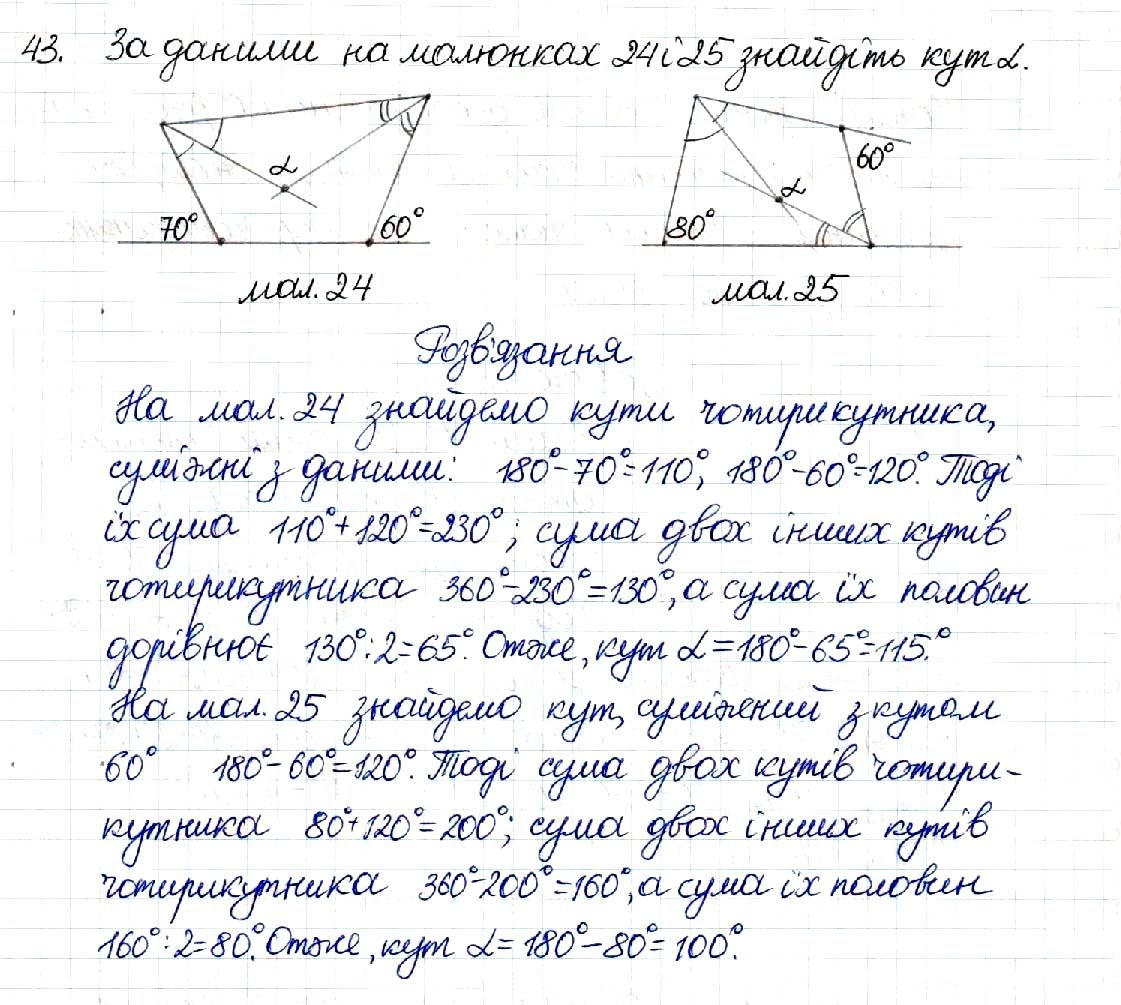 43. За даними на малюнках 24 і 25 знайдіть кут α.
α
70°
60°
мал. 24
60°
α
80°
мал. 25
Розв'язання
На мал. 24 знайдемо кути чотирикутника,
суміжні з даними: 180°-70°=110°, 180°-60°=120°. Тоді
їх сума 110°+120°=230°; сума двох інших кутів
чотирикутника 360°-230°=130°, а сума їх половин
дорівнює 130°:2=65°. Отже, кут α=180°-65°=115°.
На мал. 25 знайдемо кут, суміжний з кутом
60° 180°-60°=120°. Тоді сума двох кутів чотири-
кутника 80°+120°=200°; сума двох інших кутів
чотирикутника 360°-200°=160°, а сума їх половин
160°:2=80°. Отже, кут α=180°-80°=100°.